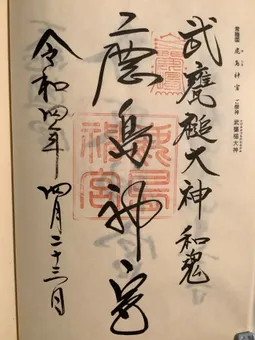 常陸国 鹿島神宮 ご祭神 武甕槌大神
武甕槌大神 和魂
鹿島神宮
鹿島神宮
令和四年四月二十三日